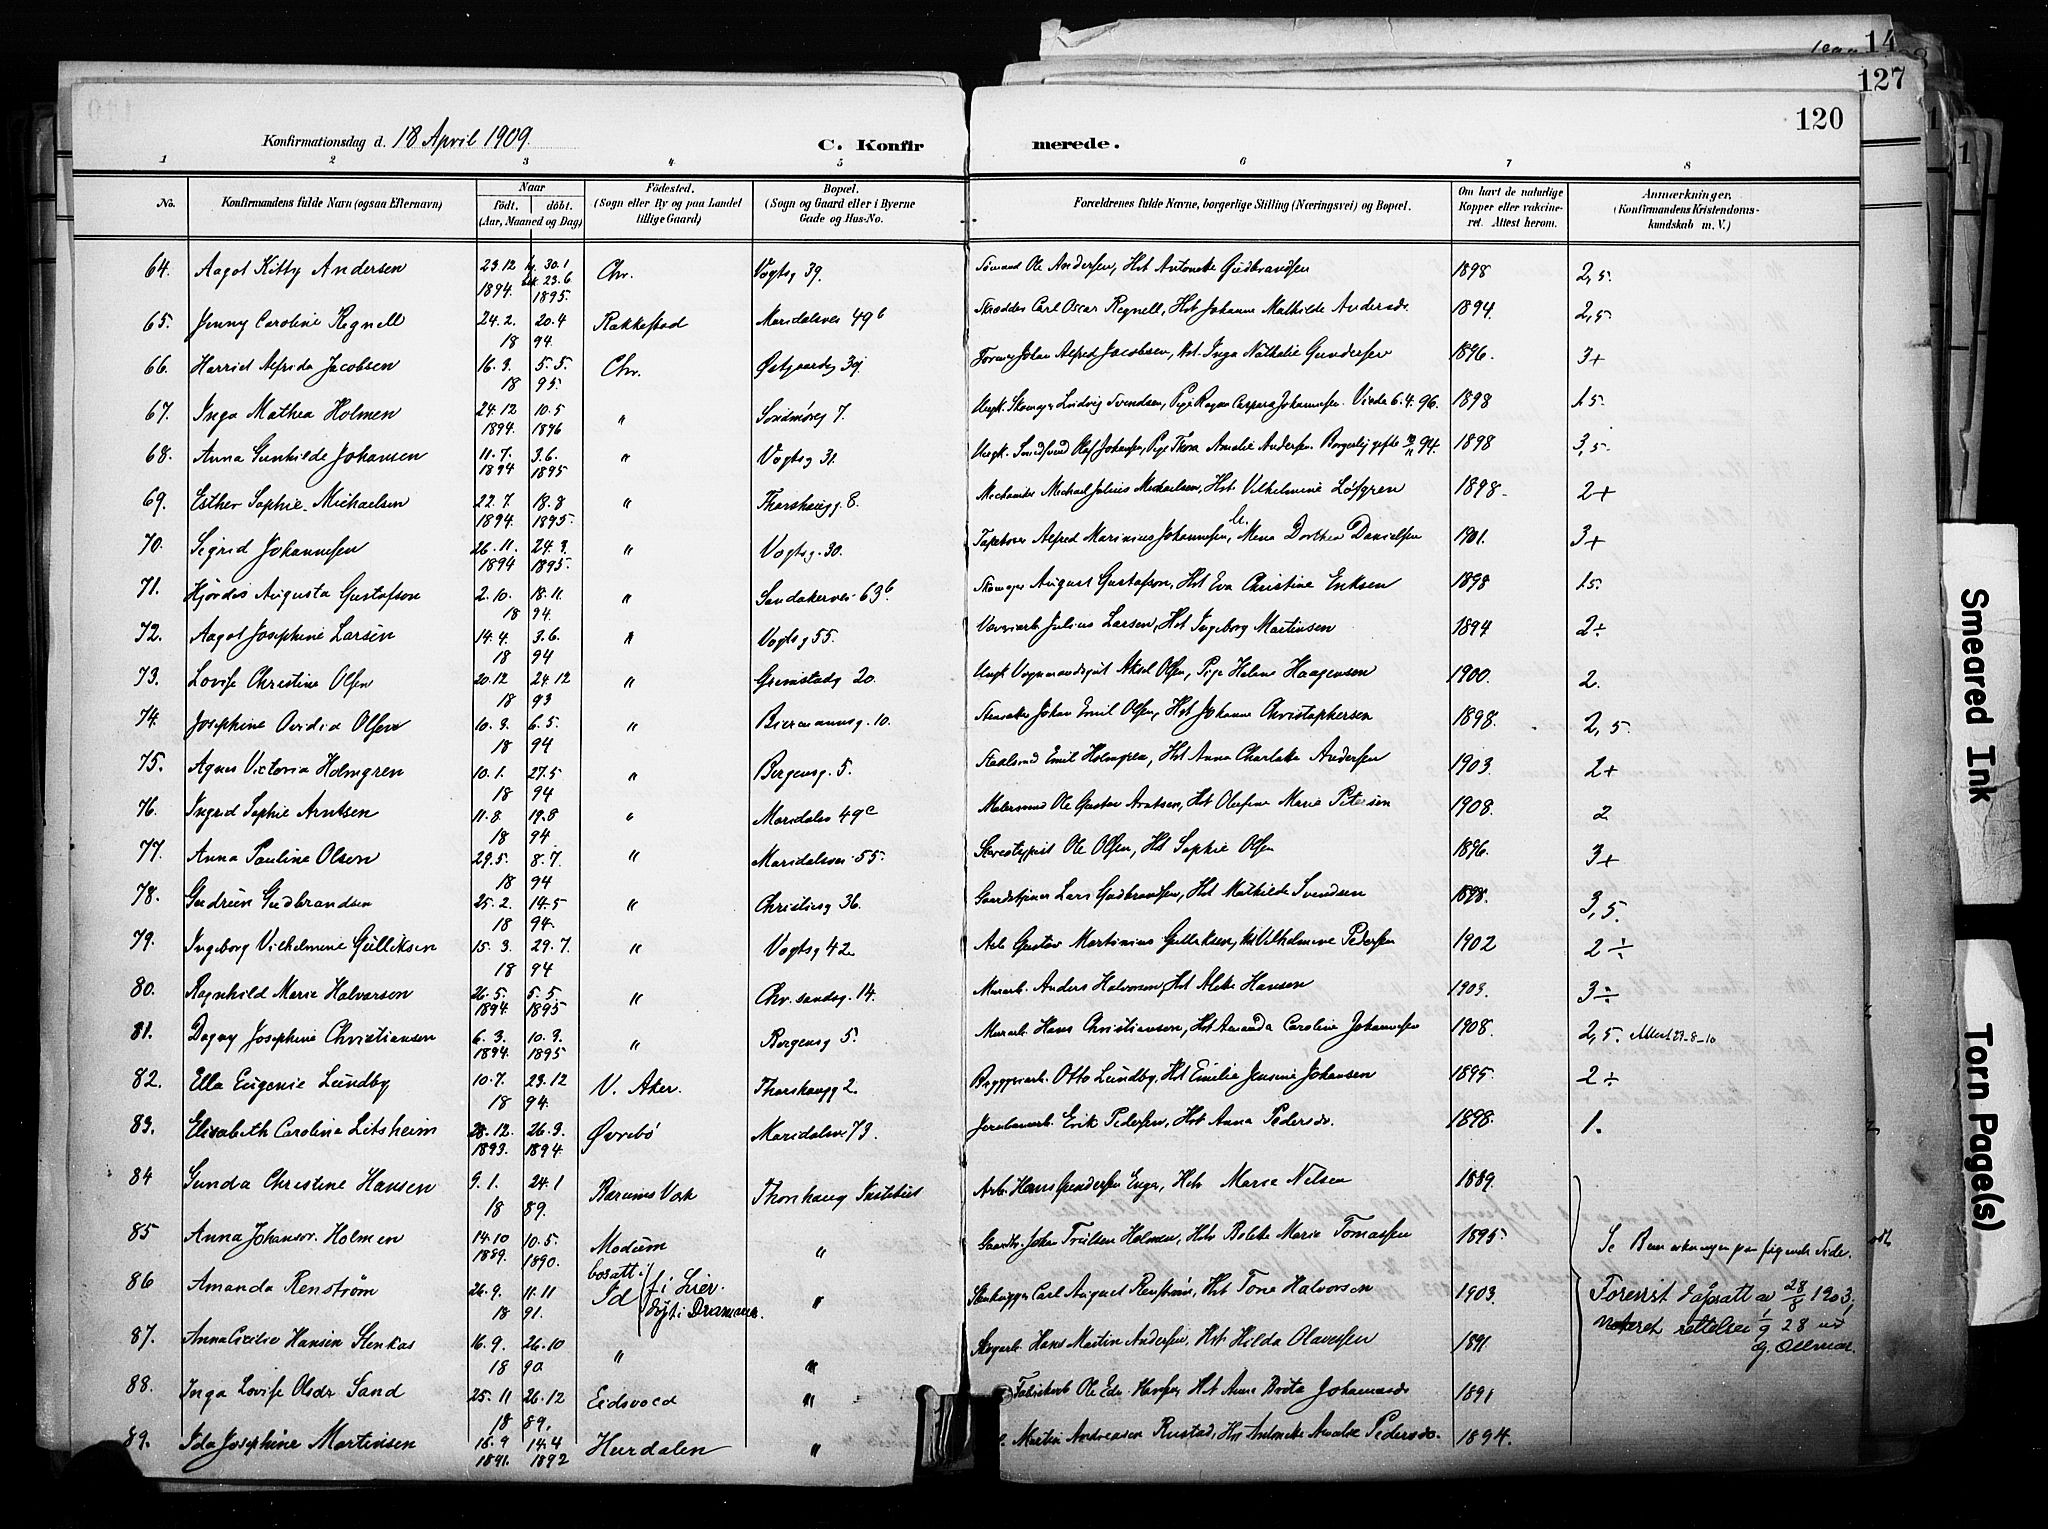 14
127
120
Konfirmationsdag d. 18 April 1909.
C. Konfir merede.
1 2 3 4 5 6 7 8
No. Konfirmandens fulde Navn (ogsaa Efternavn) Naar født. døbt. (Aar, Maaned og Dag) Fødested. (Sogn eller By og paa Landet tillige Gaard) Bopæl. (Sogn og Gaard eller i Byerne Gade og Hus-No. Forældrenes fulde Navne, borgerlige Stilling (Næringsvei) og Bopæl. Om havt de naturlige Kopper eller vakcineret. Attest herom. Anmærkninger. (Konfirmandens Kristendomskundskab m. V.)
64. Aagot Kitty Andersen 23.12 1894. 30.1 23.6 1895. Chr. Vogtsg 39. Sømand Ole Andersen, Hst Antonette Gudbrandsen 1898 2,5
65. Jenny Caroline Regnell 24.2. 20.4 18 94. Rakkestad Maridalsvei 49b Skrædder Carl Oscar Regnell, Hst Johanne Mathilde Andersd. 1894. 2,5
66. Harriet Alfrida Jacobsen 16.3. 5.5. 18 95. Chr. Østgaardsg 39. Former Johan Alfred Jacobsen, Hst. Inga Nathalie Gundersen 1896. 3+
67. Inga Mathea Holmen 24.12 1894. 10.5 1896 " Søndmøreg 7. Ungk. Skomager Ludvig Svendsen, Pige Ragna Caspara Johannesen. Viede 6.4.96. 1898 1.5
68. Anna Gunhilde Johansen 11.7. 1894 3.6. 1895. " Vogtsg 31. Ungk. Olaf Johansen, Pige Thora Amalie Andersen. Borgerlig gifte 94. 1898 3,5
69. Esther Sophie Michaelsen 22.7. 1894. 18.8 1895. " Thorshaugg. 8. Mechaniker Michael Julius Michaelsen, Hst. Vilhelmine Løfgren 1898. 2+
70. Sigrid Johannesen 26.11. 1894 24.3. 1895. " Vogtsg. 30. Tapetserer Alfred Marinius Johannesen, Mena Dorthea Danielsen 1901. 3+
71. Hjørdis Augusta Gustafson 2.10. 18.11. 18 94. " Sandakervei 63b Skomager August Gustafson, Hst Eva Christine Eriksen 1898 1.5
72. Aagot Josephine Larsen 14.4. 3.6. 18 94 " Vogtsg 55. Væveriarb. Julius Larsen, Hst Ingeborg Martinsen 1894 2÷
73. Lovise Christine Olsen 20.12 24.12 18 93 " Grimstadg 20. Ungk Vognmandsgut Aksel Olsen, Pige Helene Haagensen 1900. 2.
74. Josephine Ovidia Olsen 10.3. 6.5. 18 94 " Biermannsg. 10. Johan Emil Olsen, Hst Johanne Christophersen 1898. 2,5.
75. Agnes Victoria Holmgren 10.1. 27.5 18 94 " Bergensg. 5. Emil Holmgren, Hst Anna Charlotte Andersen 1903. 2+
76. Ingrid Sophie Arntsen 11.8. 19.8 18 94 " Maridalsv 49c Malersvend Ole Gustav Arntsen, Hst Olufine Marie Petersen 1908. 2
77. Anna Pauline Olsen 29.5. 8.7. 18 94 " Maridalsvei 55. Stereotypist Ole Olsen, Hst Sophie Olsen 1896. 3+
78. Gudrun Gudbrandsen 25.2. 14.5 18 94. " Christiesg 36. Lars Gudbrandsen, Hst Mathilde Svendsen 1898. 3,5.
79. Ingeborg Vilhelmine Gulliksen 15.3. 29.7. 18 94 " Vogtsg 42 Arb Gustav Martinius Gulliksen, Hst Vilhelmine Pedersen 1902 2÷
80. Ragnhild Marie Halvorsen 26.5. 1894 5.5. 1895 " Chr.sandsg. 14. Murarb. Anders Halvorsen, Hst Alette Hansen 1903. 3÷
81. Dagny Josephine Christiansen 6.3. 1894. 10.3. 1895 " Bergensg 5. Murarb. Hans Christiansen, Hst Amanda Caroline Johannesen 1908. 2,5. Attest 29-8-10
82. Ella Eugenie Lundby 10.7. 23.12 18 94. V. Aker. Thorshaugg 2. Bryggeriarb. Otto Lundby, Hst Emilie Jensine Johansen 1895. 2÷
83. Elisabeth Carolina Litsheim 28.12. 1893. 26.3. 1894 Øvrebø Maridalsvei 73. Jernbanearb. Erik Pedersen, Hst Anna Pedersd. 1898. 1.
84 Gunda Christine Hansen 9.1. 24.1 18 89. Bærums Værk Thorshaug Institut Arb. Hans Gundersen Enger, Hst. Marie Nilsen 1889.
85 Anna Johansdr. Holmen 14.10 1889. 10.5. 1890. Modum " Gaardbr. Johan Truelsen Holmen, Hst. Bolette Marie Tomassen 1895. Se Bemærkningen paa følgende Side.
86 Amanda Renström 26.9. 11.11 18 91. bosatt i Id (f i Lier. døpt i Drammen. " Stenhugger Carl August Renström, Hst. Tone Halvorsen 1903. Forenst dåpsatt av 28/8 1903, notert rettelse 1/9 28
87. Anna Cecilie Hansen Stenkas 16.9. 26.10 18 90 " " Skogarb. Hans Martin Andersen, Hst. Hilda Olavesen 1891.
88. Inga Lovise Olsdr Sand 25.11 26.12 18 89. Eidsvold " Fabrikarb Ole Edv. Hst Anne Brita Johannesd. 1891
89. Ida Josephine Martinsen 16.9 1891. 14.4 1892 Hurdalen " Martin Andreasen Rustad, Hst Antonette Amalie Pedersd. 1894.
Smeared Ink
Torn Page(s)